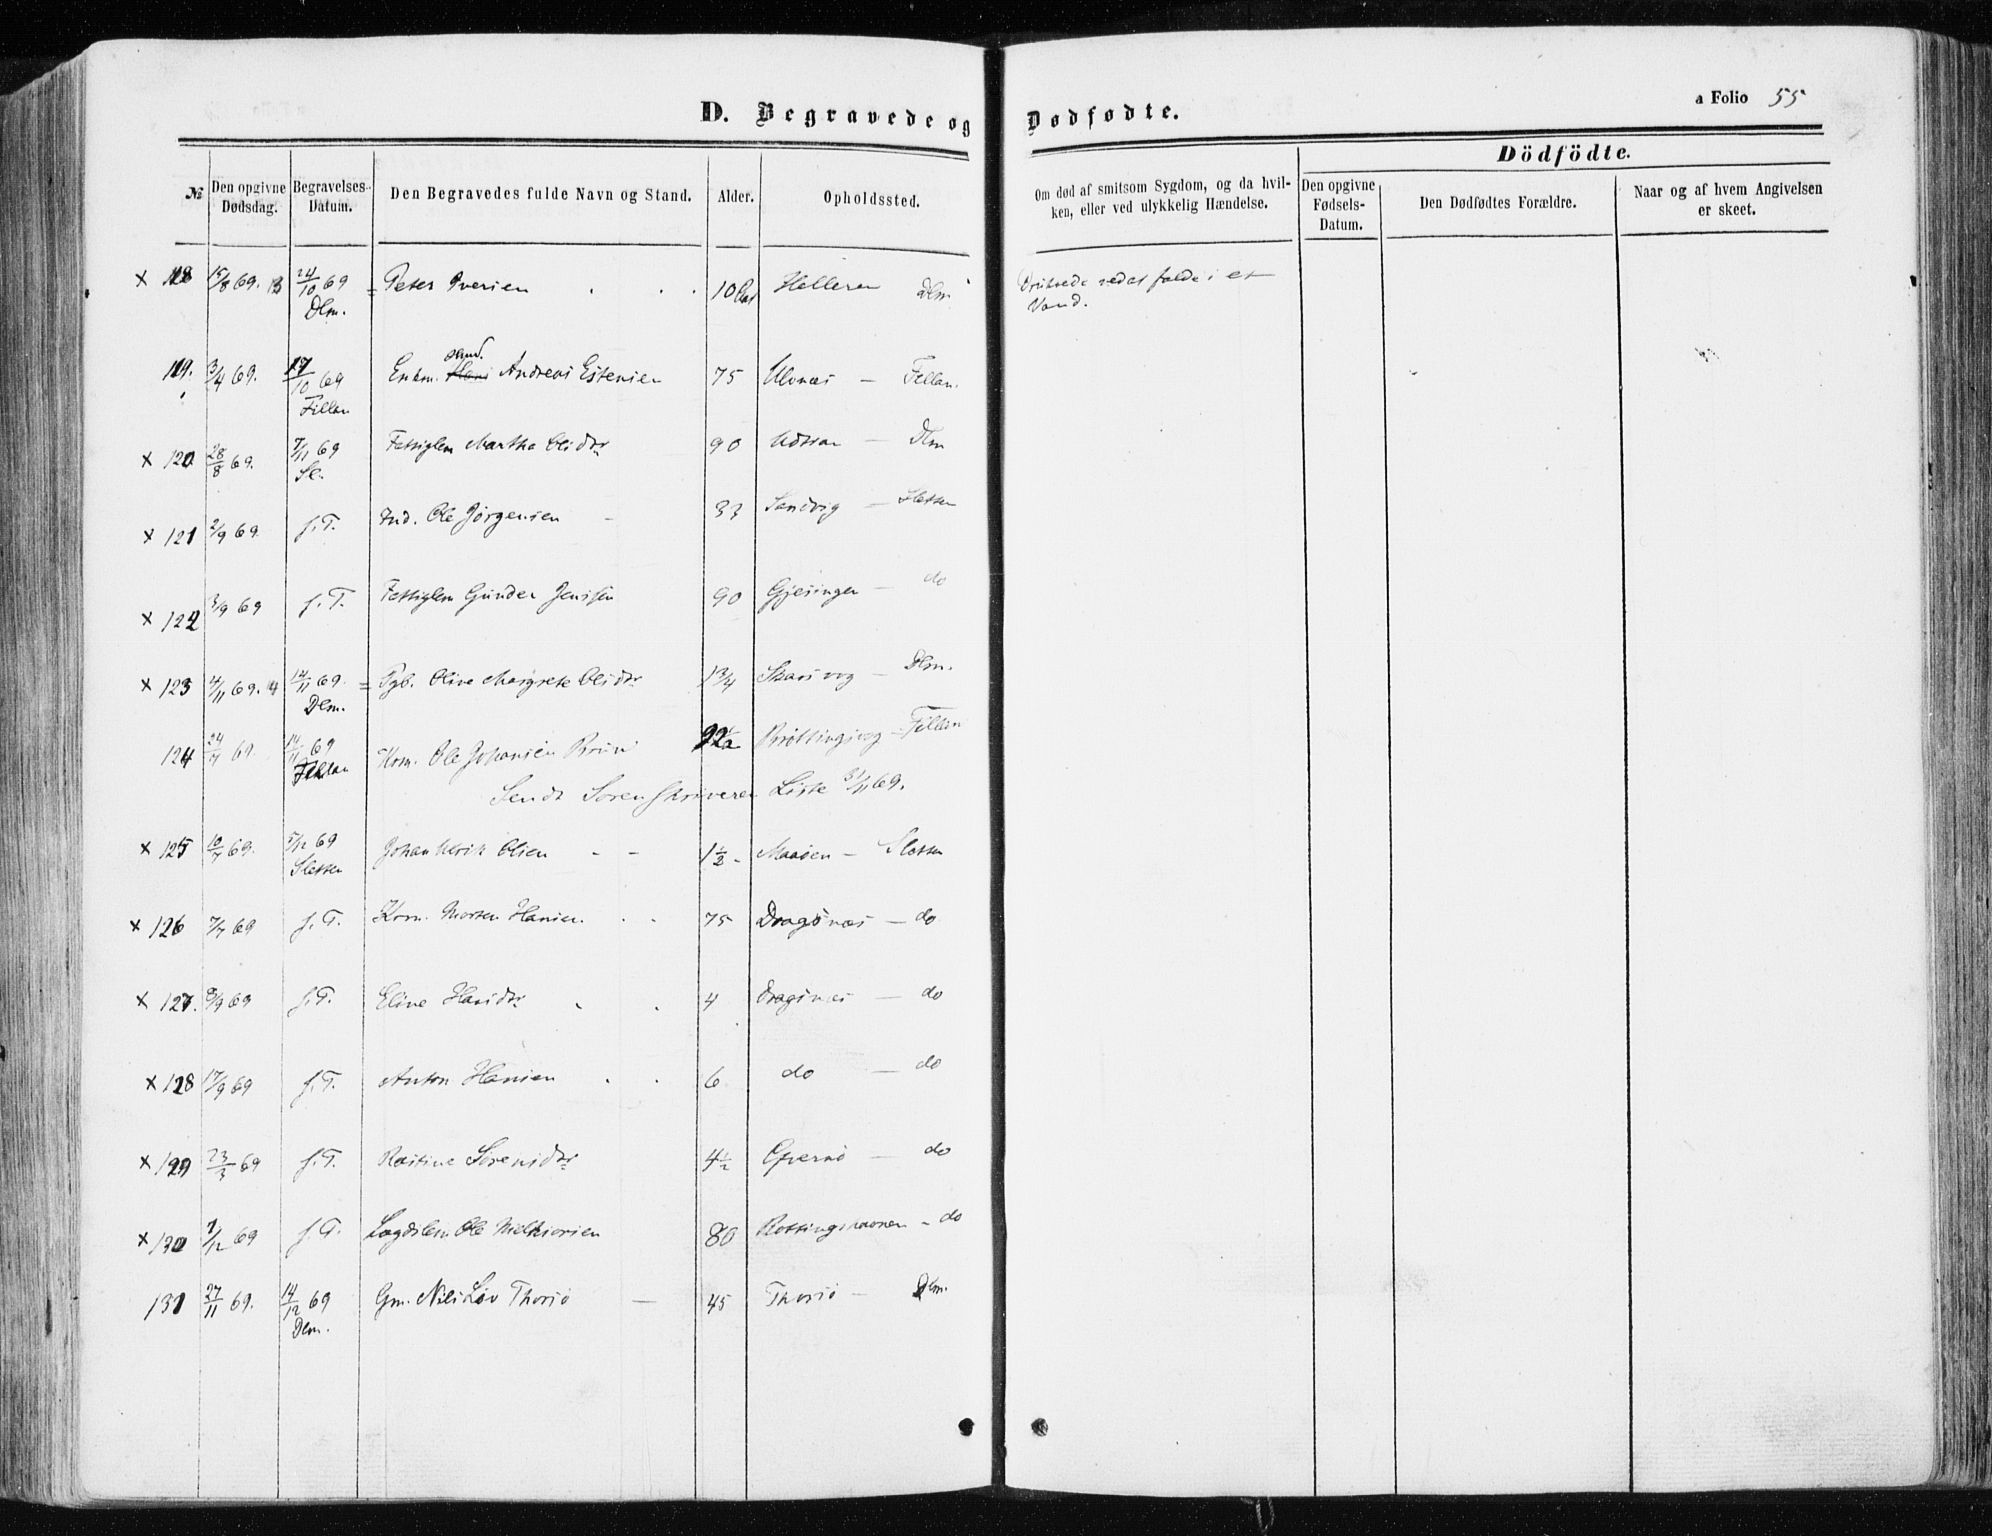 D. Begravede og Dødfødte.
a Folio 55
Dödfödte.
№ Den opgivne Dødsdag. Begravelses-Datum. Den Begravedes fulde Navn og Stand. Alder. Opholdssted. Om død af smitsom Sygdom, og da hvilken, eller ved ulykkelig Hændelse. Den opgivne Fødsels-Datum. Den Dødfødtes Forældre. Naar og af hvem Angivelsen er skeet.
x 118 15/8 69. 24/10 69 = Peter Iversen 10 Helleren Dlm
Dlm.
Vand.
119. 3/4 69. 17/10 69 Enkm. Andreas Estensen 75 Ulvnæs — Fillan.
Fillan
x 120 28/8 69. 7/11 69 Fattiglem Martha Olsdtr 90 Udsran — Dlm
Sl.
x 121 2/9 69. s. T. Ind. Ole Jørgensen 33 Sandvig — Sletten
x 122 3/9 69 s. T. Fattiglem Gunder Jenssen 90 Gjesingen — do
x 123 4/11 69. 14/11 69. = Pgb. Oline Margrete Olsdtr 1 3/4 Skarsvog — Dlm.
Dlm.
124 24/7 69. 14/11 69 Krm. Ole Johansen Bruun 22 1/2 Brøttingsvog — Fillan
Fillan
Sendt Sorenskriveren Liste 31/11 69.
x 125 10/7 69. 5/12 69 Johan Ulrik Olsen 1 1/2 Maaøen — Sletten
Sletten
x 126 7/7 69 s. T. Krm. Morten Hansen 75 Dragsnæs — do
x 127. 8/9 69 s. T. Eline Hansdtr 4 Dragsnæs — do
x 128 17/9 69 s. T. Anton Hansen 6 do — do
x 129 23/3 69 s. T. Rastine Sørensdtr 4 1/2 — do
x 130 1/12 69 s. T. Lægdslem Ole Melkiorsen 80 Rottingshavnen - do
131 27/11 69. 14/12 69 Gm. Nils Løv Thorsø — 45 Thorsø — Dlm.
Dlm.